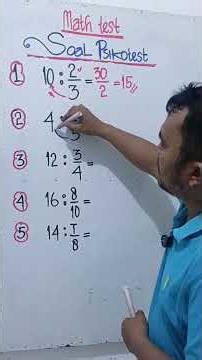 Math test
Soal Psikotest
① 10 : 2/3 = 30/2 = 15
② 4
③ 12 : 3/4 =
④ 16 : 8/10 =
⑤ 14 : 7/8 =